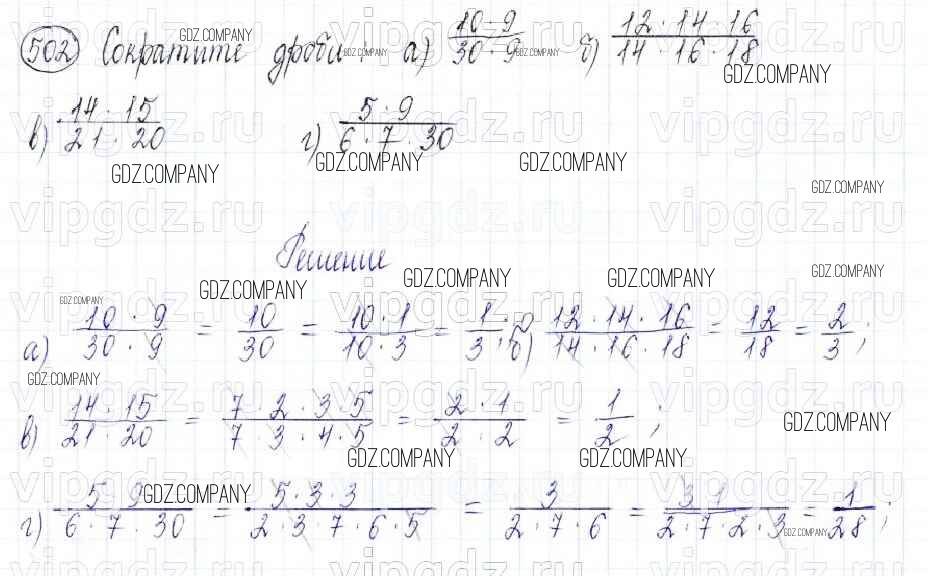 502 Сократите дроби: а) 10·9/30·9 б) 12·14·16/14·16·18
в) 14·15/21·20 г) 5·9/6·7·30
Решение
а) 10·9/30·9 = 10/30 = 10·1/10·3 = 1/3; б) 12·14·16/14·16·18 = 12/18 = 2/3;
в) 14·15/21·20 = 7·2·3·5/7·3·4·5 = 2·1/2·2 = 1/2;
г) 5·9/6·7·30 = 5·3·3/2·3·7·6·5 = 3/2·7·6 = 3·1/2·7·2·3 = 1/28;
GDZ.COMPANY
vipgdz.ru